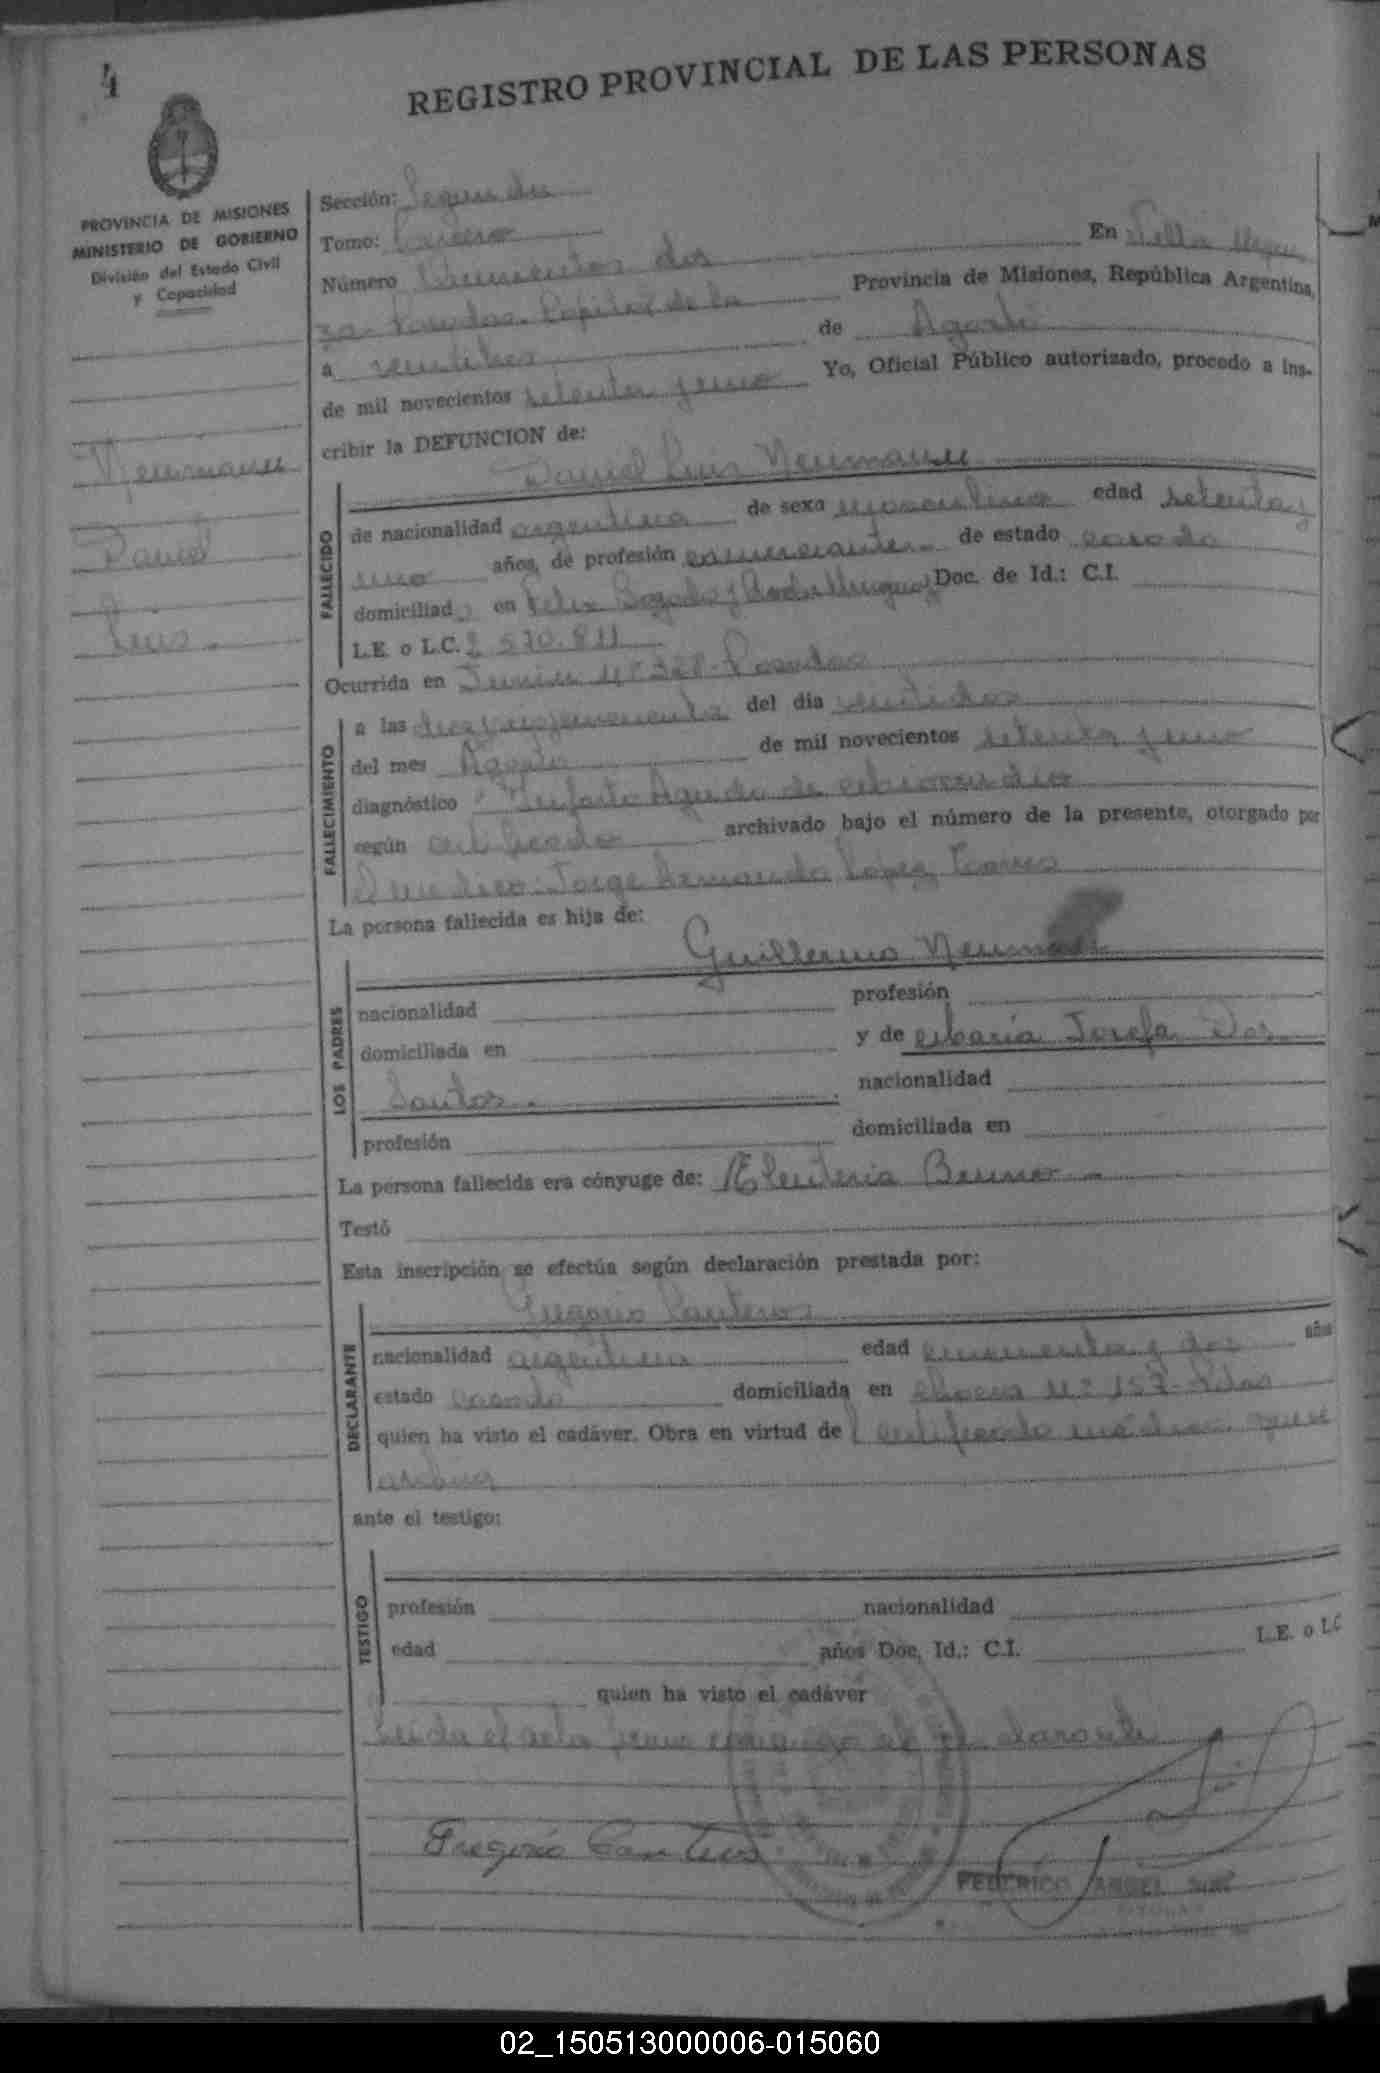 4
REGISTRO PROVINCIAL DE LAS PERSONAS
PROVINCIA DE MISIONES
MINISTERIO DE GOBIERNO
División del Estado Civil
y Capacidad
Neumann
Daniel
Luis.
Sección: Segunda
Tomo: Tercero
Número dos En Villa
za Posadas Capital de la Provincia de Misiones, República Argentina,
a veintitres de Agosto
de mil novecientos setenta y uno Yo, Oficial Público autorizado, procedo a ins-
cribir la DEFUNCION de:
Daniel Luis Neumann
FALLECIDO
de nacionalidad argentina de sexo masculino edad setenta y
uno años, de profesión comerciante de estado casado
domiciliado en Felix Bogado y Doc. de Id.: C.I.
L.E. o L.C. 2.570.811
Ocurrida en Junin Nº 328 - Posadas
FALLECIMIENTO
a las del día veintidos
del mes Agosto de mil novecientos setenta y uno
diagnóstico Infarto Agudo de miocardio
según certificado archivado bajo el número de la presente, otorgado por
el medico: Jorge Hernando Lopez Torres
La persona fallecida es hija de:
Guillermo Neumann
LOS PADRES
nacionalidad profesión
domiciliada en y de Maria Josefa Dos
Santos. nacionalidad
profesión domiciliada en
La persona fallecida era cónyuge de: Eleuteria Bruno
Testó
Esta inscripción se efectúa según declaración prestada por:
Gregorio Canteros
DECLARANTE
nacionalidad argentina edad cincuenta y dos años
estado casado domiciliada en Nº 157 - Pdas
quien ha visto el cadáver. Obra en virtud de l certificado médico que
archivo
ante el testigo:
TESTIGO
profesión nacionalidad
edad años Doc. Id.: C.I. L.E. o LC
quien ha visto el cadáver
Leida el acta firma conmigo el declarante
Gregorio Canteros
FEDERICO ANGEL
TITULAR
02_150513000006-015060